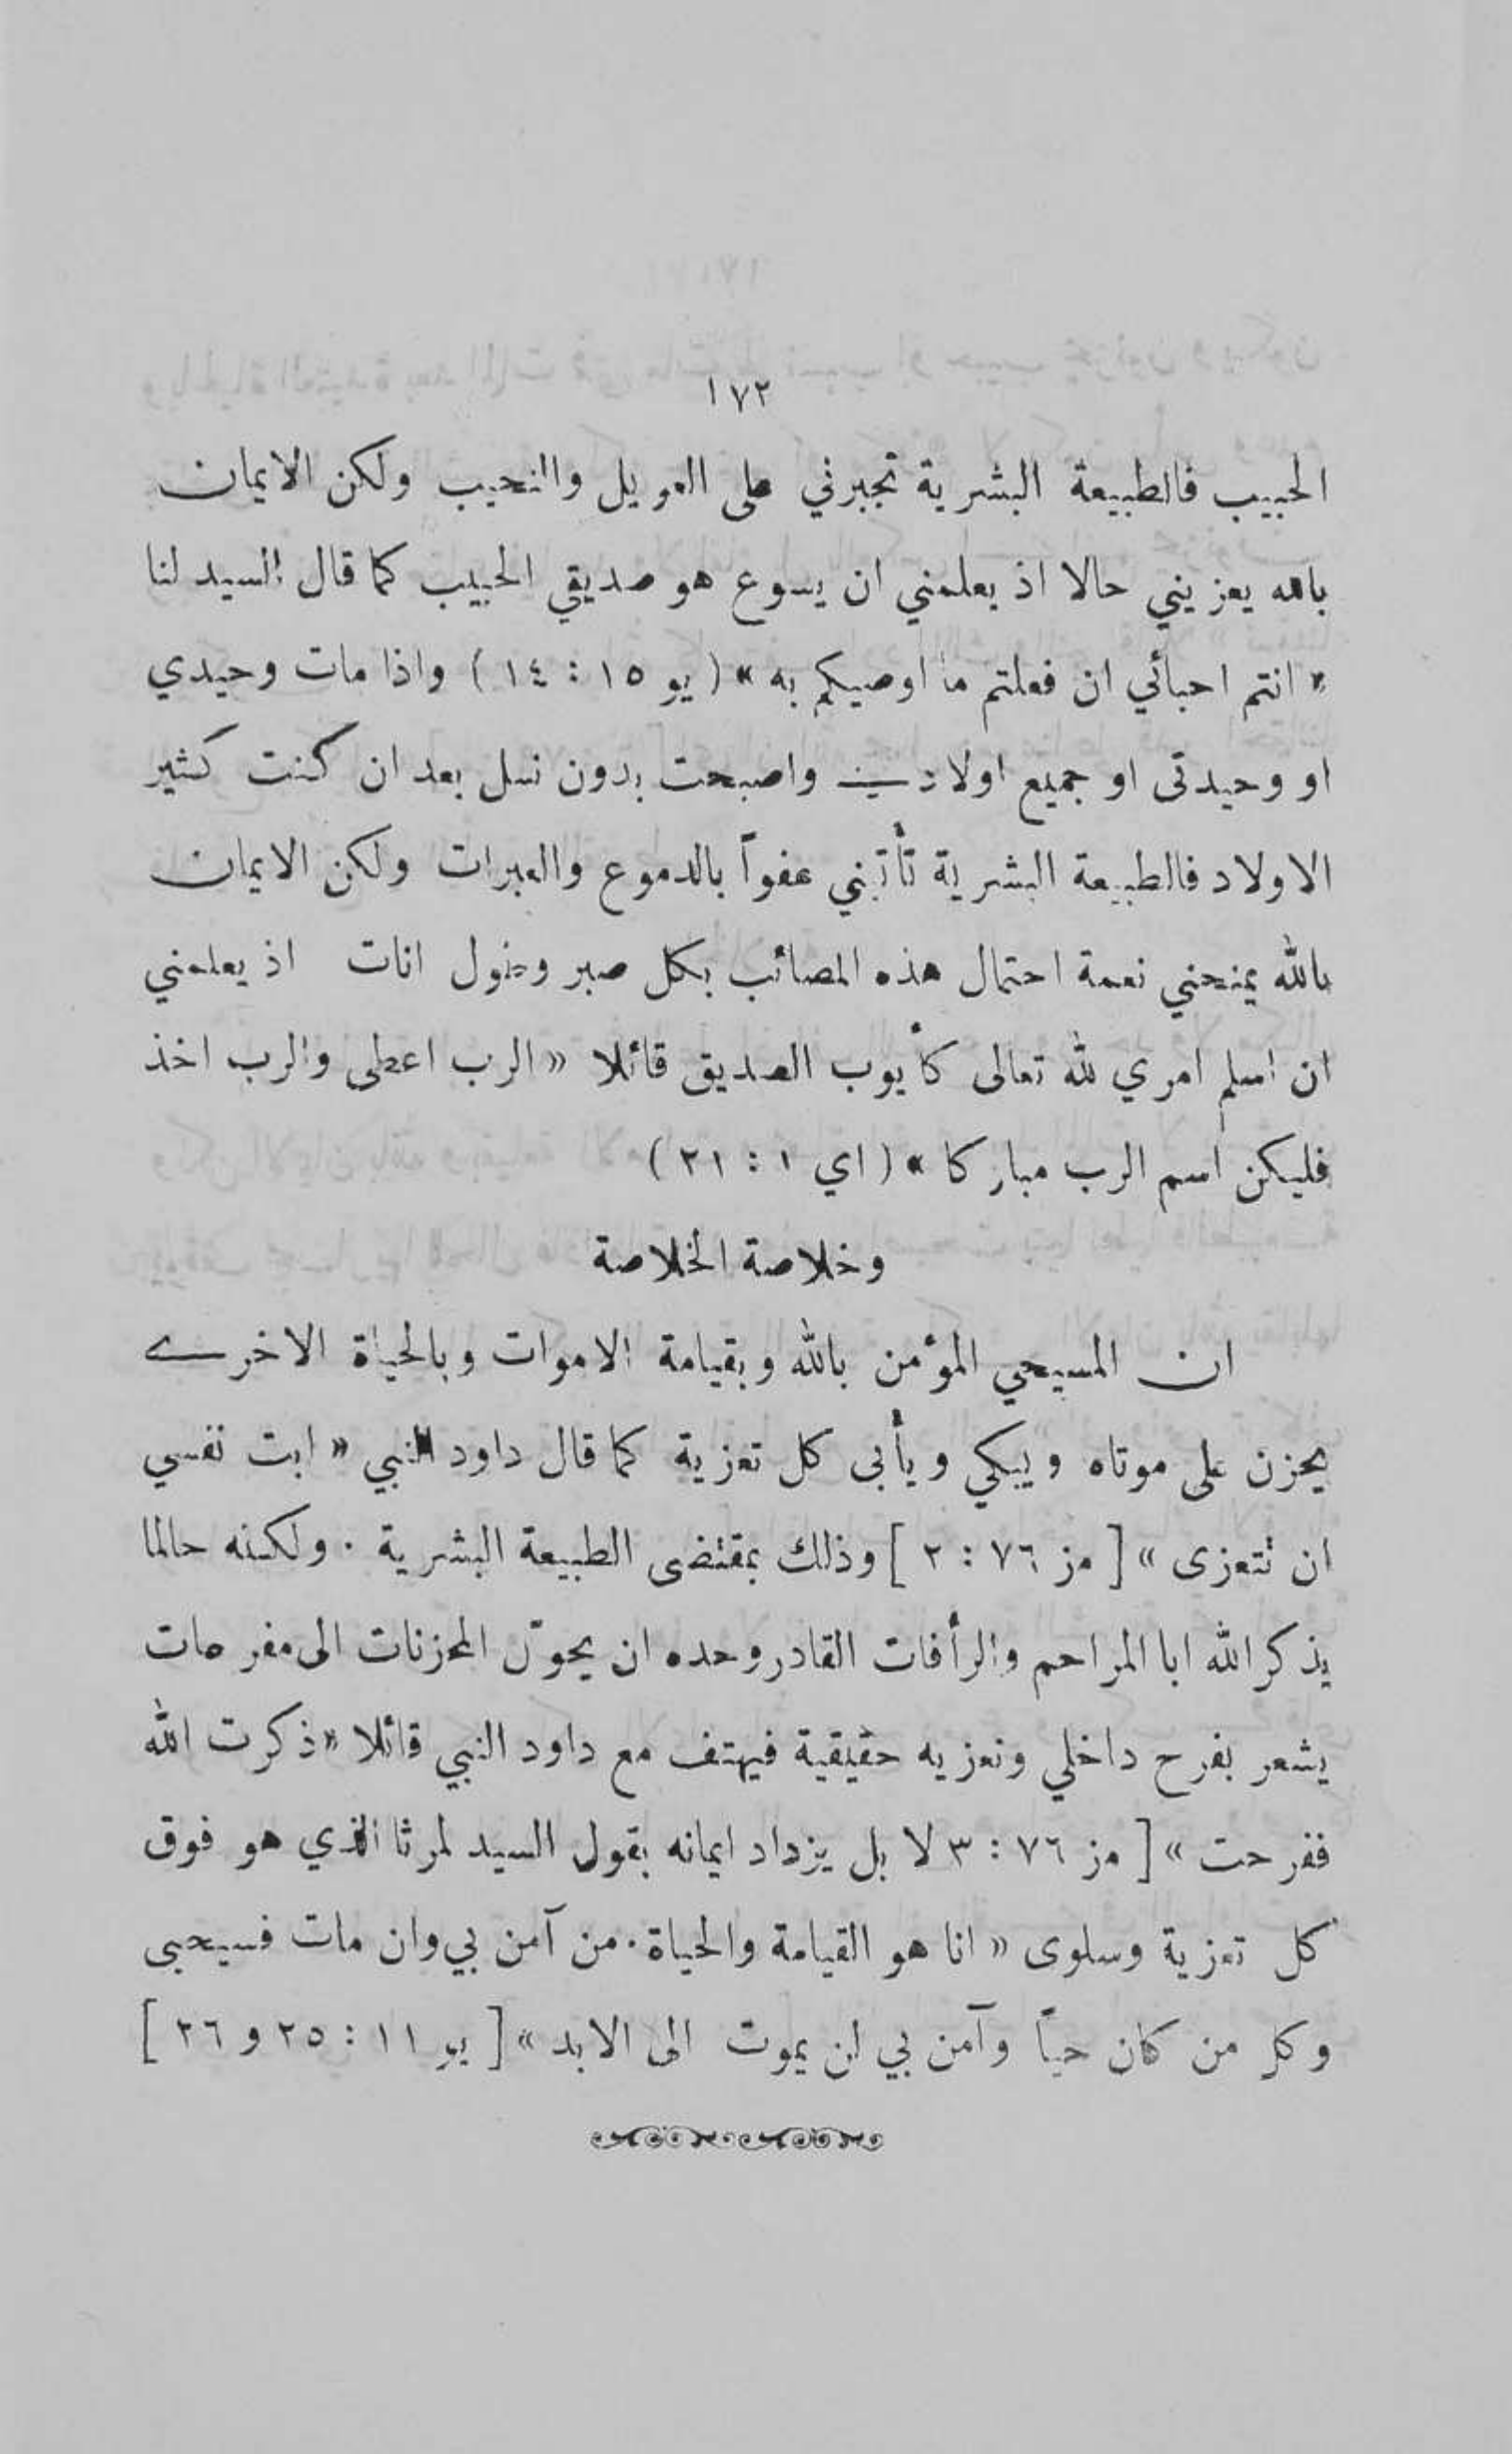 ١٧٢
الحبيب فالطبيعة البشرية تجبرني على العويل والنحيب ولكن الايمان
بالله يعزيني حالا اذ يعلمني ان يسوع هو صديقي الحبيب كما قال السيد لنا
« انتم احبائي ان فعلتم ما اوصيكم به » ( يو ١٥ : ١٤ ) واذا مات وحيدي
او وحيدتى او جميع اولادي واصبحت بدون نسل بعد ان كنت كثير
الاولاد فالطبيعة البشرية تأتيني عفواً بالدموع والعبرات ولكن الايمان
بالله يمنحني نعمة احتمال هذه المصائب بكل صبر وطول انات اذ يعلمني
ان اسلم امري لله تعالى كأيوب الصديق قائلا « الرب اعطى والرب اخذ
فليكن اسم الرب مباركا » ( اي ١ : ٢١ )
وخلاصة الخلاصة
ان المسيحي المؤمن بالله وبقيامة الاموات وبالحياة الاخرى
يحزن على موتاه ويبكي ويأبى كل تعزية كما قال داود النبي « ابت نفسي
ان تتعزى » [ مز ٧٦ : ٢ ] وذلك بمقتضى الطبيعة البشرية . ولكنه حالما
يذكر الله ابا المراحم والرأفات القادر وحده ان يحوّل المحزنات الى مفرحات
يشعر بفرح داخلي وتعزيه حقيقية فيهتف مع داود النبي قائلا « ذكرت الله
ففرحت » [ مز ٧٦ : ٣ لا بل يزداد ايمانه بقول السيد لمرثا الذي هو فوق
كل تعزية وسلوى « انا هو القيامة والحياة . من آمن بي وان مات فسيحيى
وكل من كان حياً وآمن بي لن يموت الى الابد » [ يو ١١ : ٢٥ و ٢٦ ]